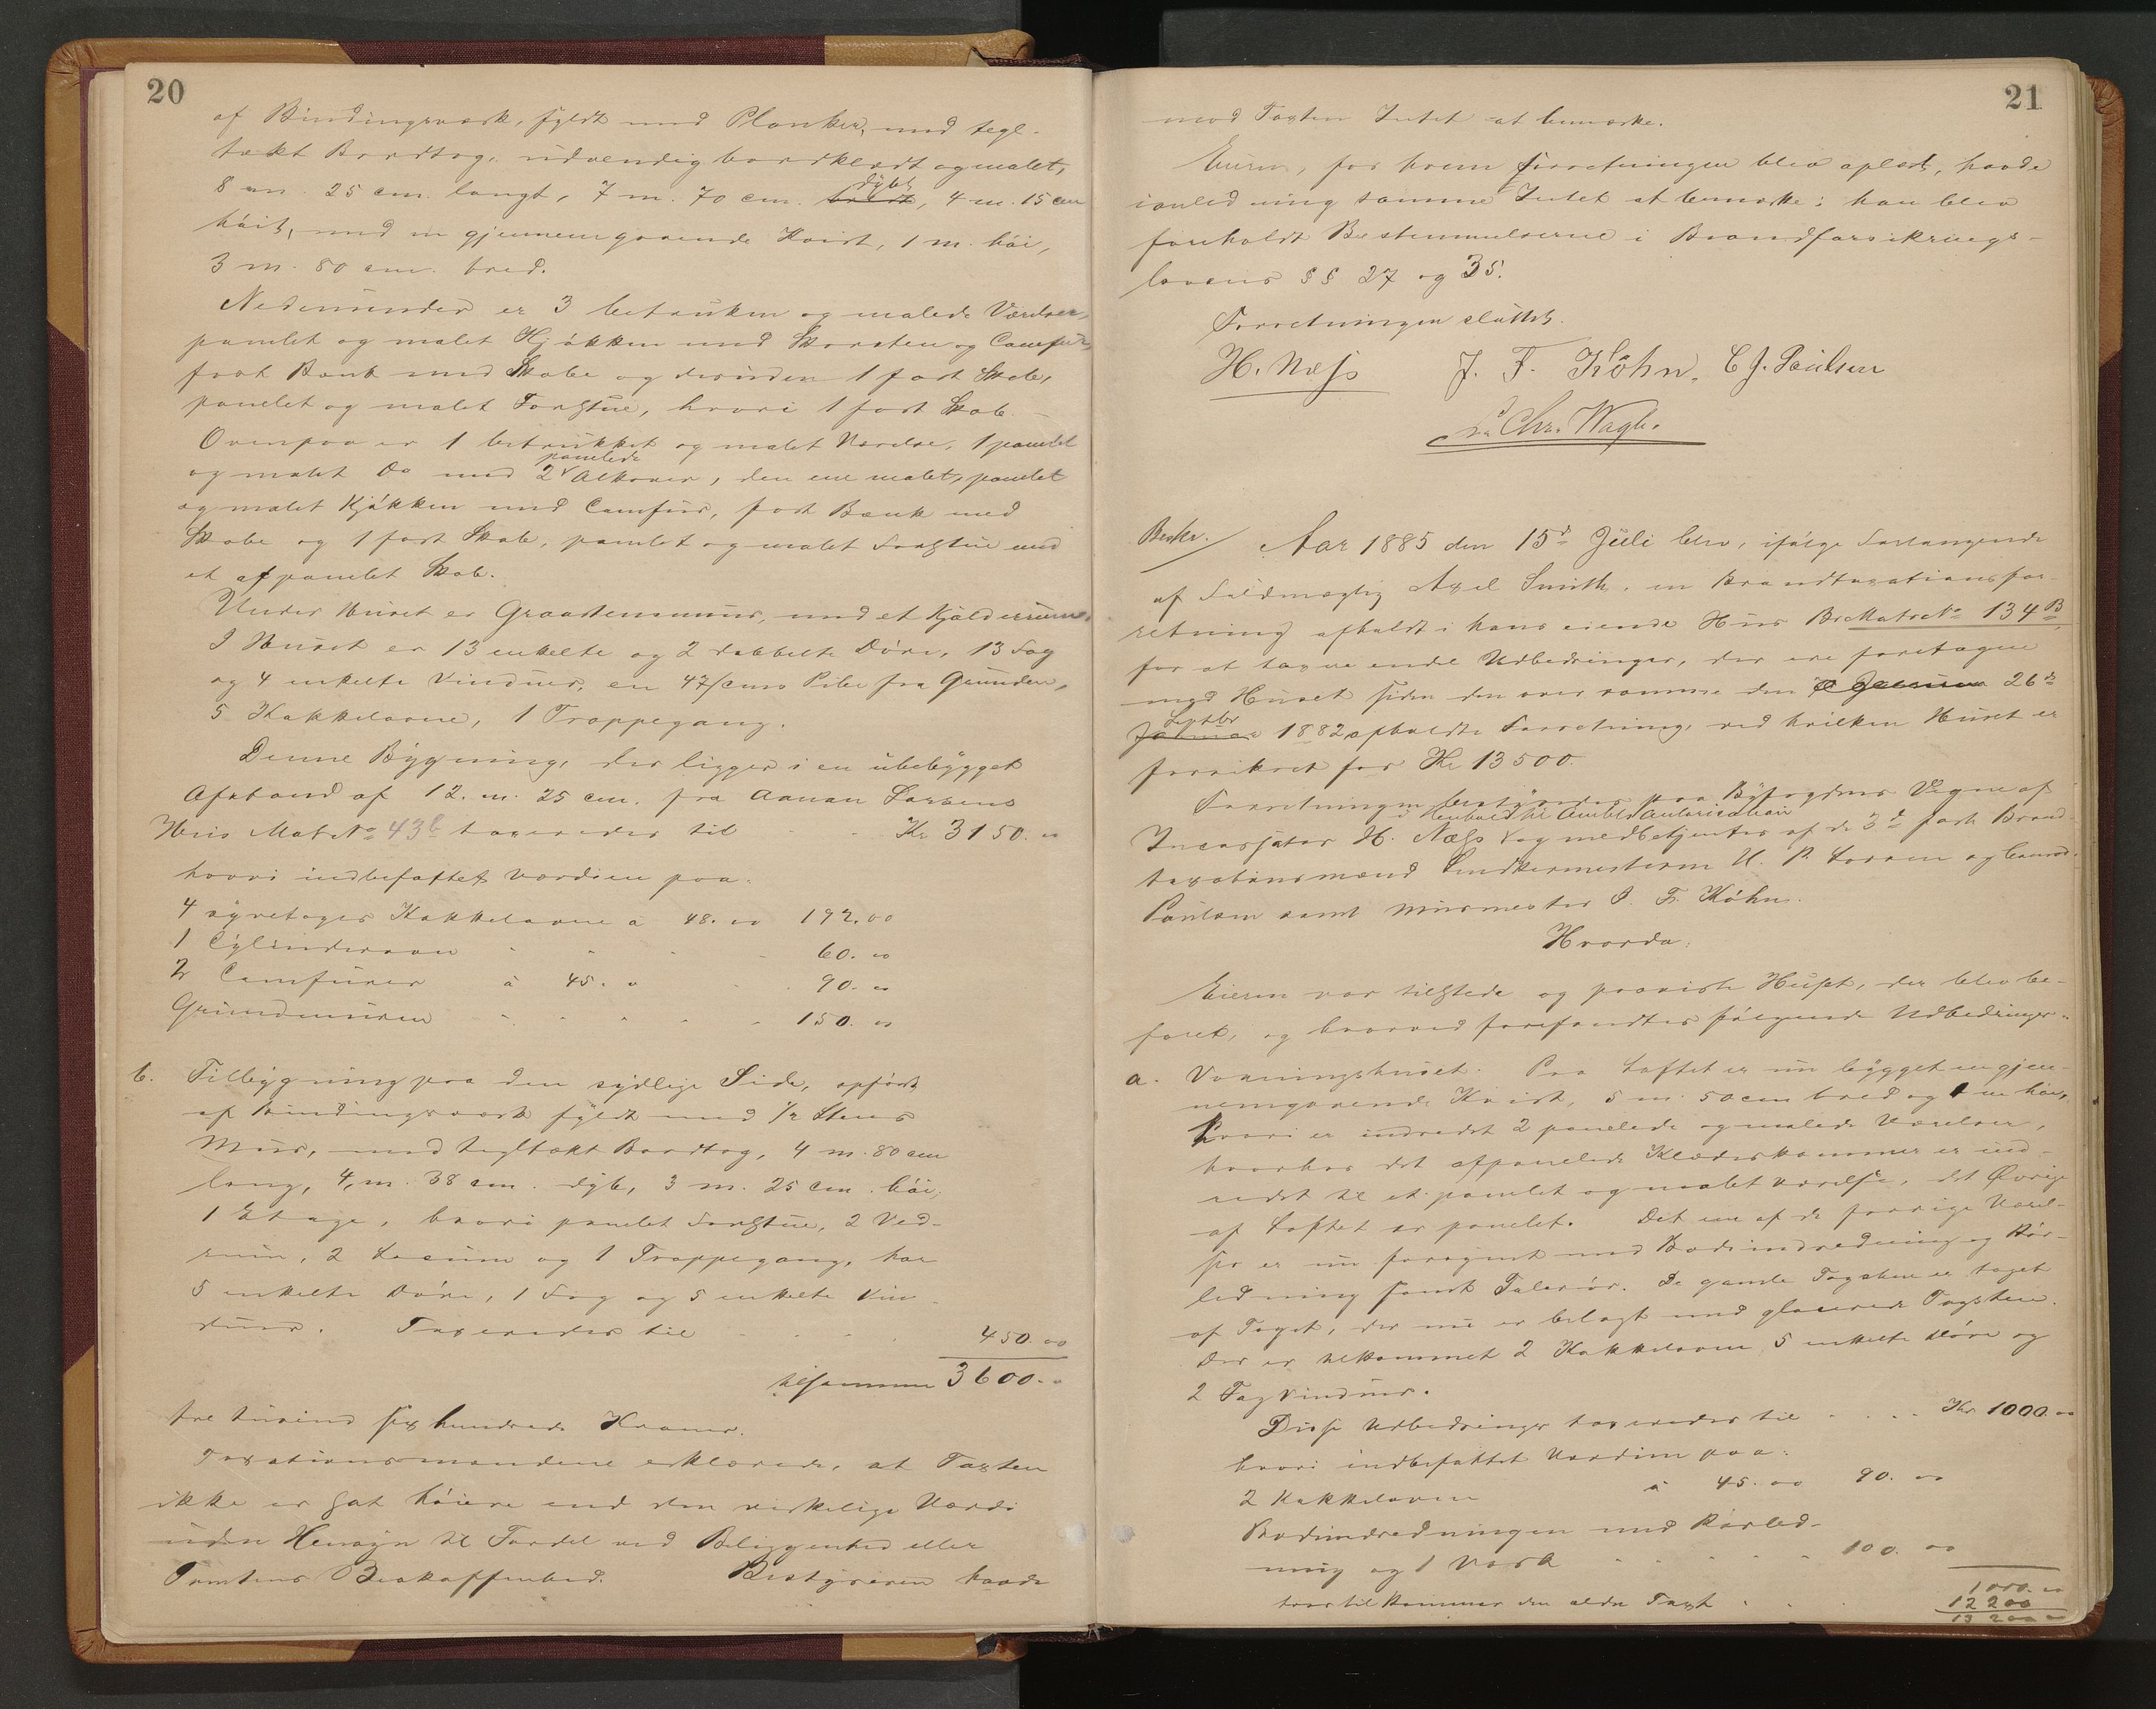 20
af Bindingsværk, fyldt med Planker, med tegl-
tækt Bordtag, udvendig bordklædt og malet,
8 m. 25 cm. langt, 7 m. 70 cm. bredt dybt, 4 m. 15 cm
høit, med en gjennemgaaende Kvist, 1 m. høi,
3 m. 80 cm. bred.
Nedenunder er 3 betrukne og malede Værelser,
panelet og malet Kjøkken med Skorsten og Comfur,
fast Bænk med Skabe og desuden 1 fast Skab,
panelet og malet Forstue, hvori 1 fast Skab.
Ovenpaa er 1 betrukket og malet Værelse, 1 panelet
og malet Do med 2 panelede Alkover, den ene malet, panelet
og malet Kjøkken med Comfur, fast Bænk med
Skabe og 1 fast Skab, panelet og malet Forstue med
et afpanelet Skab.
Under Huset er Graastensmuur, med et Kjælderrum.
I Huset er 13 enkelte og 2 dobbelte Døre, 13 Fag
og 4 enkelte Vinduer, en 47/cms Pibe fra Grunden,
5 Kakkelovne, 1 Trappegang.
Denne Bygning, der ligger i en ubebygget
Afstand af 12. m. 25 cm. fra Aanan Larsens
Huus Mat No 43b taxeredes til Kr 3150. 00
hvori indbefattet Værdien paa:
4 Kakkelovne a 48. 00 192. 00
1 Cylinderovn 60. 00
2 Comfurer à 45. 00 90. 00
Grundmuren 150. 00
b. Tilbygning paa den sydlige Side, opført
af Bindingsværk fyldt med 1/2 Stens
Muur, med tegltækt Bordtag, 4 m. 80 cm
lang, 4, m. 38 cm. dyb, 3 m. 25 cm. høi,
1 Etage, hvori panelet Forstue, 2 Ved-
rum, 2 Locum og 1 Trappegang, har
5 enkelte Døre, 1 Fag og 5 enkelte Vin-
duer. Taxeredes til 450. 00
tilsammen 3600. 00
tre tusind sex hundrede Kroner.
Taxationsmændene erklærede, at Taxten
ikke er sat høiere end den virkelige Værdi
uden Hensyn til Fordel ved Beliggenhed eller
Tomtens Beskaffenhed. Bestyreren havde
21
mod Taxten Intet at bemærke.
Eieren, for hvem Forretningen blev oplæst, havde
ianledning samme Intet at bemærke; han blev
foreholdt Bestemmelserne i Brandforsikrings-
lovens §§ 27 og 35.
Forretningen sluttet.
H. Næss J. F. Köhn. C J. Paulsen
Chr. Wagle.
Beskr. Aar 1885 den 15de Juli blev, ifølge Forlangende
af Fuldmægtig Axel Smith, en Brandtaxationsfor-
retning afholdt i hans eiende Hus Br Matr No 134B
for at taxere endel Udbedringer, der ere foretagne
med Huset siden den over samme den 26de
Septbr 1882 afholdte Forretning, ved hvilken Huset er
forsikret for Kr 13500.
Forretningen bestyredes paa Byfogdens Vegne af
Incassator H. Næss i Henhold til Ambtsautorisation og medbetjentes af de 3de faste Brand-
taxationsmænd Snedkermesterne U. P. Larsen og Conrad
Paulsen samt Muurmester J. F. Köhn.
Hvorda:
Eieren var tilstede og paaviste Huset, der blev be-
faret, og hvorved forefandtes følgende Udbedringer:
a. Vaaningshuset. Paa Loftet er nu bygget en gjen-
nemgaaende Kvist, 5 m. 50 cm bred og 1 m høi,
hvori er indredet 2 panelede og malede Værelser,
hvorhos det afpanelede Klædeskammer er ind-
redet til et panelet og malet Værelse, det Øvrige
af Loftet er panelet. Det ene af de forrige Værel-
ser er nu forsynet med Badeindredning og Rør-
ledning samt Talerør. De gamle Tagstene er taget
af Taget, der nu er belagt med glacerede Tagstene.
Der er tilkommet 2 Kakkelovne, 5 enkelte Døre og
2 Tagvinduer.
Disse Udbedringer taxeredes til Kr 1000. 00
hvori indbefattet Værdien paa:
2 Kakkelovne à 45. 00 90. 00
Badeindredningen med Rørled-
ning og 1 Vask 100. 00
1000. 00
hvortil kommer den ældre Taxt 12 200
13 200 00